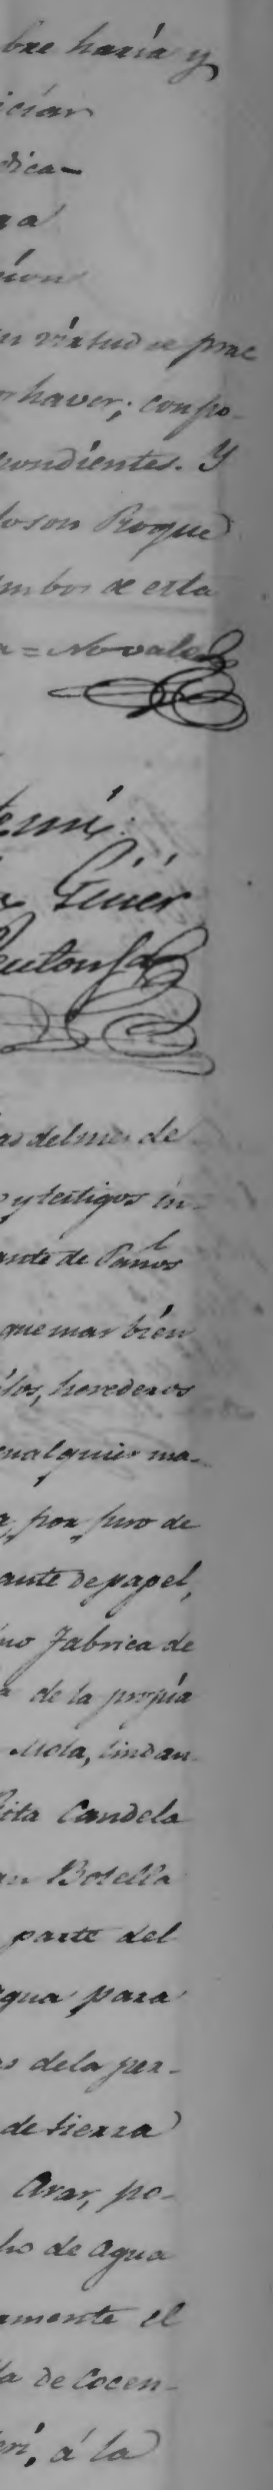 bre haria y
ician
dica-
na
cion
en virtud se prac
r haver; con po-
pondientes. Y
loson Roque
mbos de esta
a = Novales
temi:
Giner
as del mes de
o y testigos in-
ante de Paños
que mas bien
los, herederos
cualquier ma-
a, por juro de
ante de papel,
no Fabrica de
a de la propia
Mola, lindan-
Rita Candela
an Botella
parte del
agua para
s dela per-
de tierra
Arar, po-
ho de agua
amente el
la de Cocen-
eri, á la